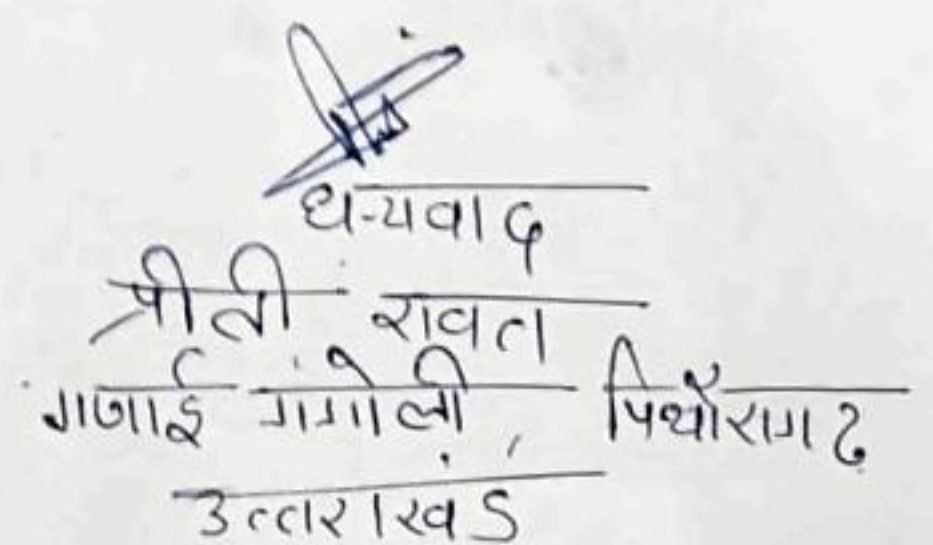 धन्यवाद
प्रीती रावत
गणाई गंगोली, पिथौरागढ़
उत्तराखंड